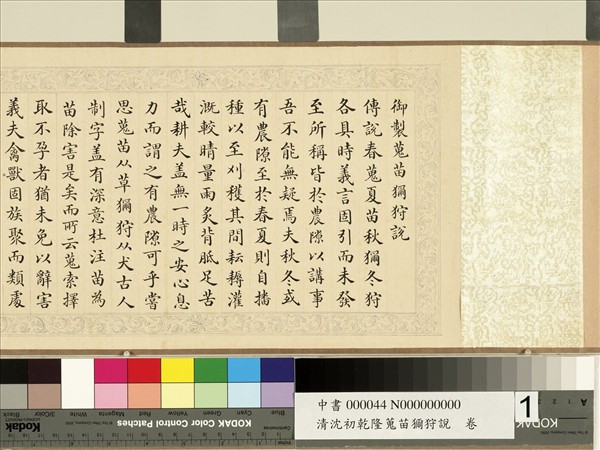 御製蒐苗獮狩說
傳說春蒐夏苗秋獮冬狩
各具時義言固引而未發
至所稱皆於農隙以講事
吾不能無疑焉夫秋冬或
有農隙至於春夏則自播
種以至刈穫其間耘耨灌
溉較晴量雨炙背胝足苦
哉耕夫蓋無一時之安心息
力而謂之有農隙可乎嘗
思蒐苗从草獮狩从犬古人
制字蓋有深意杜注苗為
苗除害是矣而所云蒐索擇
取不孕者猶未免以辭害
義夫禽獸固族聚而類處
中書 000044 N000000000
清沈初乾隆蒐苗獮狩說 卷
1
A 1 2
Blue Cyan Green Yellow Red Magenta White 3/Color Black
Kodak KODAK Color Control Patches
KODAK